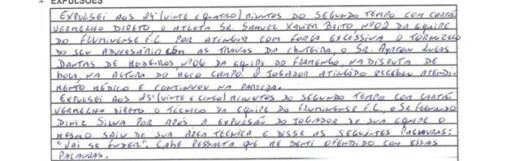 EXPULSÕES
EXPULSEI AOS 24' (VINTE E QUATRO) MINUTOS DO SEGUNDO TEMPO COM CARTÃO
VERMELHO DIRETO O ATLETA SR. SAMUEL XAVIER BRITO, Nº 02 DA EQUIPE
DO FLUMINENSE F.C. POR ATINGIR COM FORÇA EXCESSIVA O TORNOZELO
DO SEU ADVERSÁRIO COM AS TRAVAS DA CHUTEIRA, O SR. AYRTON LUCAS
DANTAS DE MEDEIROS, Nº 06 DA EQUIPE DO FLAMENGO, NA DISPUTA DE
BOLA, NA ALTURA DO MEIO CAMPO. O JOGADOR ATINGIDO RECEBEU ATENDI-
MENTO MÉDICO E CONTINUOU NA PARTIDA.
EXPULSEI AOS 25' (VINTE E CINCO) MINUTOS DO SEGUNDO TEMPO COM CARTÃO
VERMELHO DIRETO O TECNICO DA EQUIPE DO FLUMINENSE F.C., O SR FERNANDO
DINIZ SILVA POR APÓS A EXPULSÃO DO JOGADOR DE SUA EQUIPE O
MESMO SAIU DE SUA ÁREA TECNICA E DISSE AS SEGUINTES PALAVRAS:
"VAI SE FUDER". CABE RESSALTA QUE ME SENTI OFENDIDO COM ESSAS
PALAVRAS.